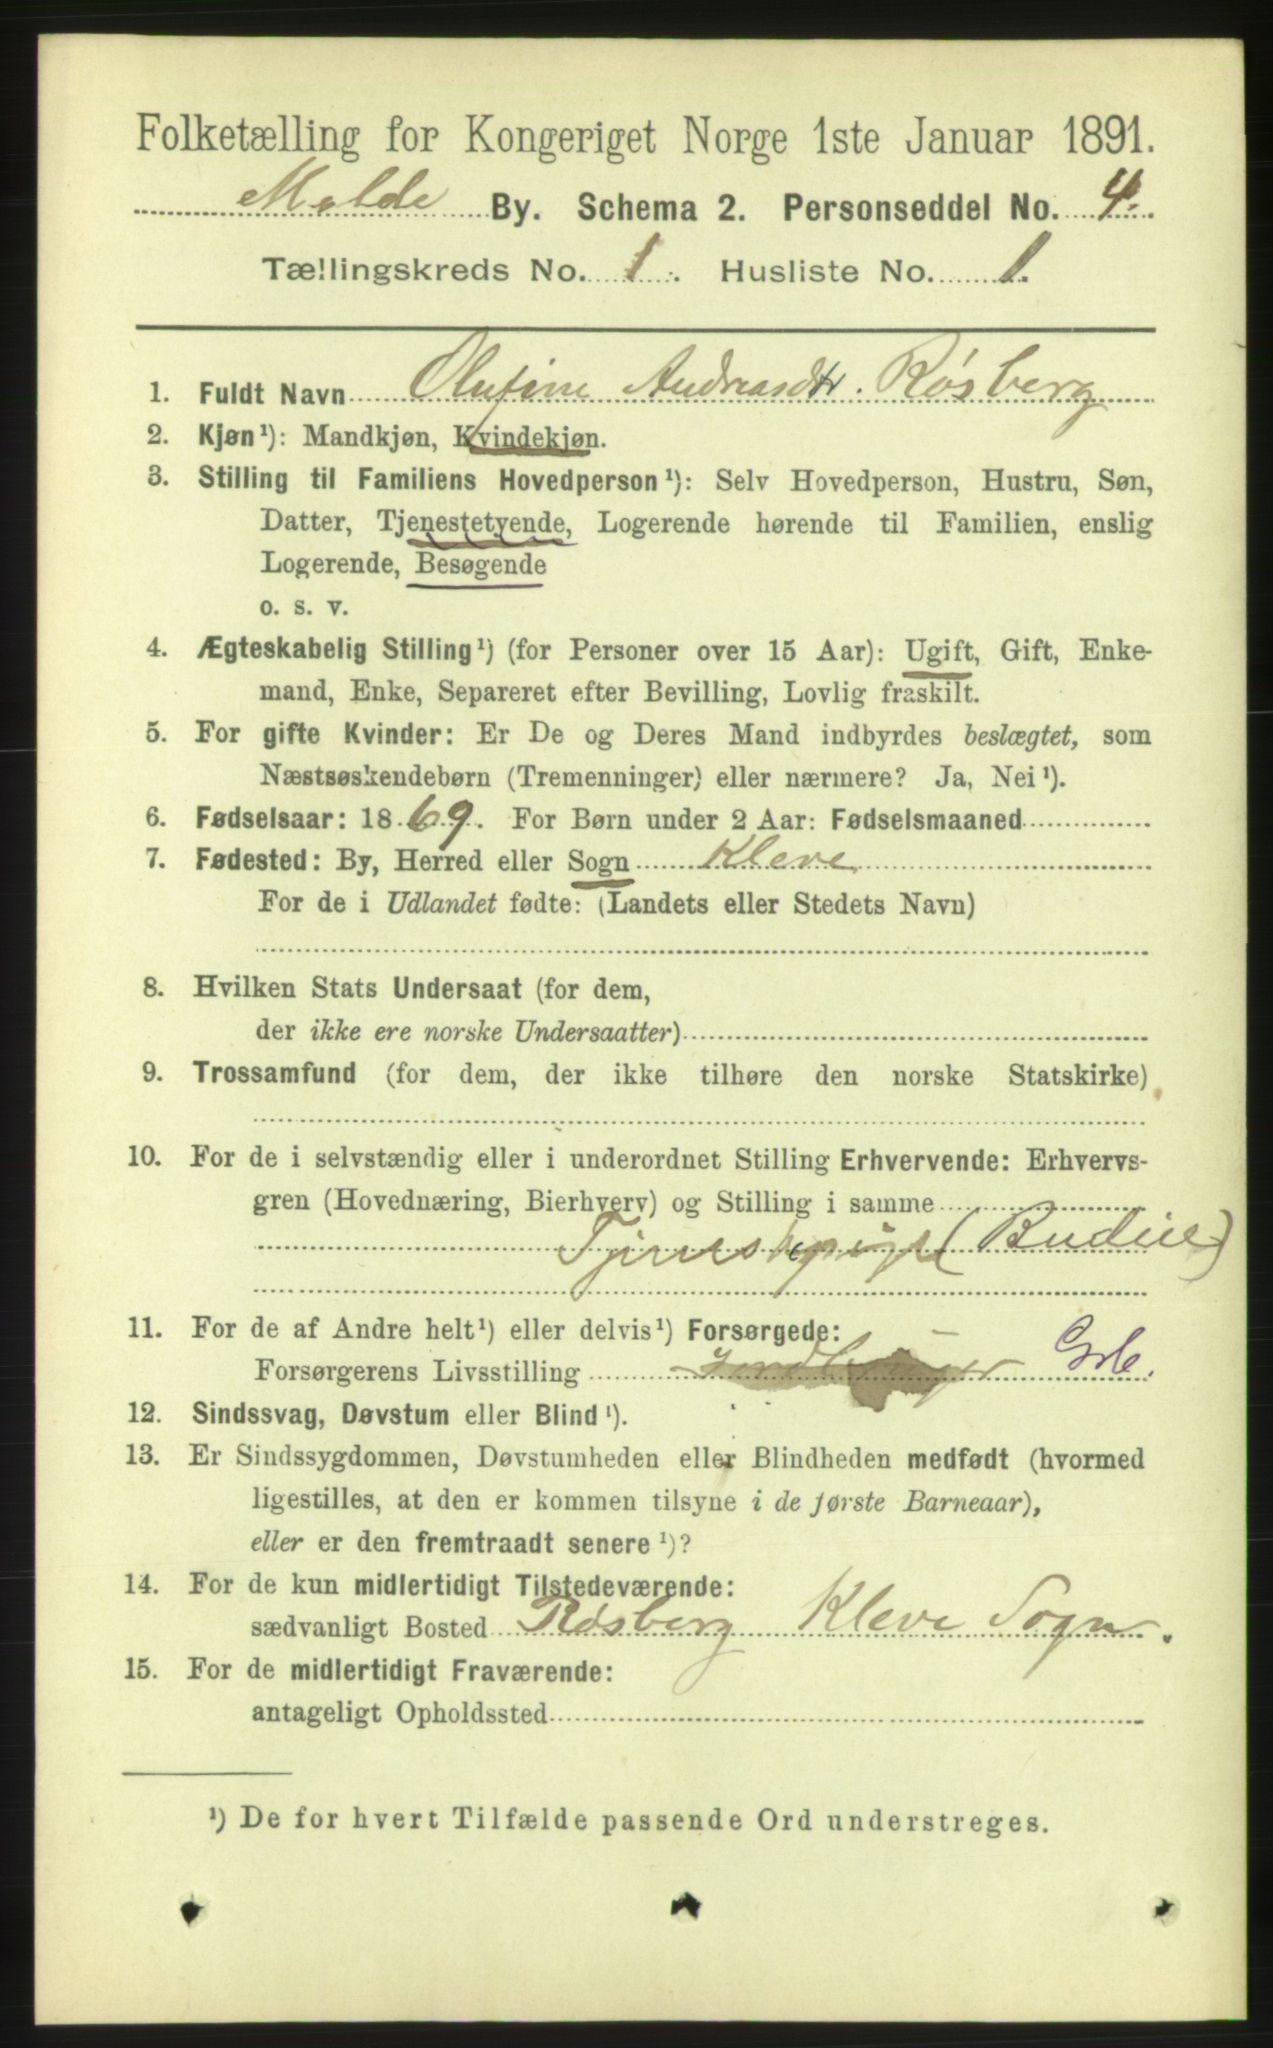 Folketælling for Kongeriget Norge 1ste Januar 1891.
Molde By. Schema 2. Personseddel No. 4.
Tællingskreds No. 1. Husliste No. 1.
1. Fuldt Navn Olufine Andreasdtr. Røsberg
2. Kjøn¹): Mandkjøn, Kvindekjøn.
3. Stilling til Familiens Hovedperson¹): Selv Hovedperson, Hustru, Søn,
Datter, Tjenestetyende, Logerende hørende til Familien, enslig
Logerende, Besøgende
o. s. v.
4. Ægteskabelig Stilling¹) (for Personer over 15 Aar): Ugift, Gift, Enke-
mand, Enke, Separeret efter Bevilling, Lovlig fraskilt.
5. For gifte Kvinder: Er De og Deres Mand indbyrdes beslægtet, som
Næstsøskendebørn (Tremenninger) eller nærmere? Ja, Nei¹).
6. Fødselsaar: 1869. For Børn under 2 Aar: Fødselsmaaned
7. Fødested: By, Herred eller Sogn Kleve
For de i Udlandet fødte: (Landets eller Stedets Navn)
8. Hvilken Stats Undersaat (for dem,
der ikke ere norske Undersaatter)
9. Trossamfund (for dem, der ikke tilhøre den norske Statskirke)
10. For de i selvstændig eller i underordnet Stilling Erhvervende: Erhvervs-
gren (Hovednæring, Bierhverv) og Stilling i samme
Tjenestepige (Budeie)
11. For de af Andre helt¹) eller delvis¹) Forsørgede:
Forsørgerens Livsstilling
12. Sindssvag, Døvstum eller Blind¹).
13. Er Sindssygdommen, Døvstumheden eller Blindheden medfødt (hvormed
ligestilles, at den er kommen tilsyne i de første Barneaar),
eller er den fremtraadt senere¹)?
14. For de kun midlertidigt Tilstedeværende:
sædvanligt Bosted Røsberg Kleve Sogn.
15. For de midlertidigt Fraværende:
antageligt Opholdssted
¹) De for hvert Tilfælde passende Ord understreges.